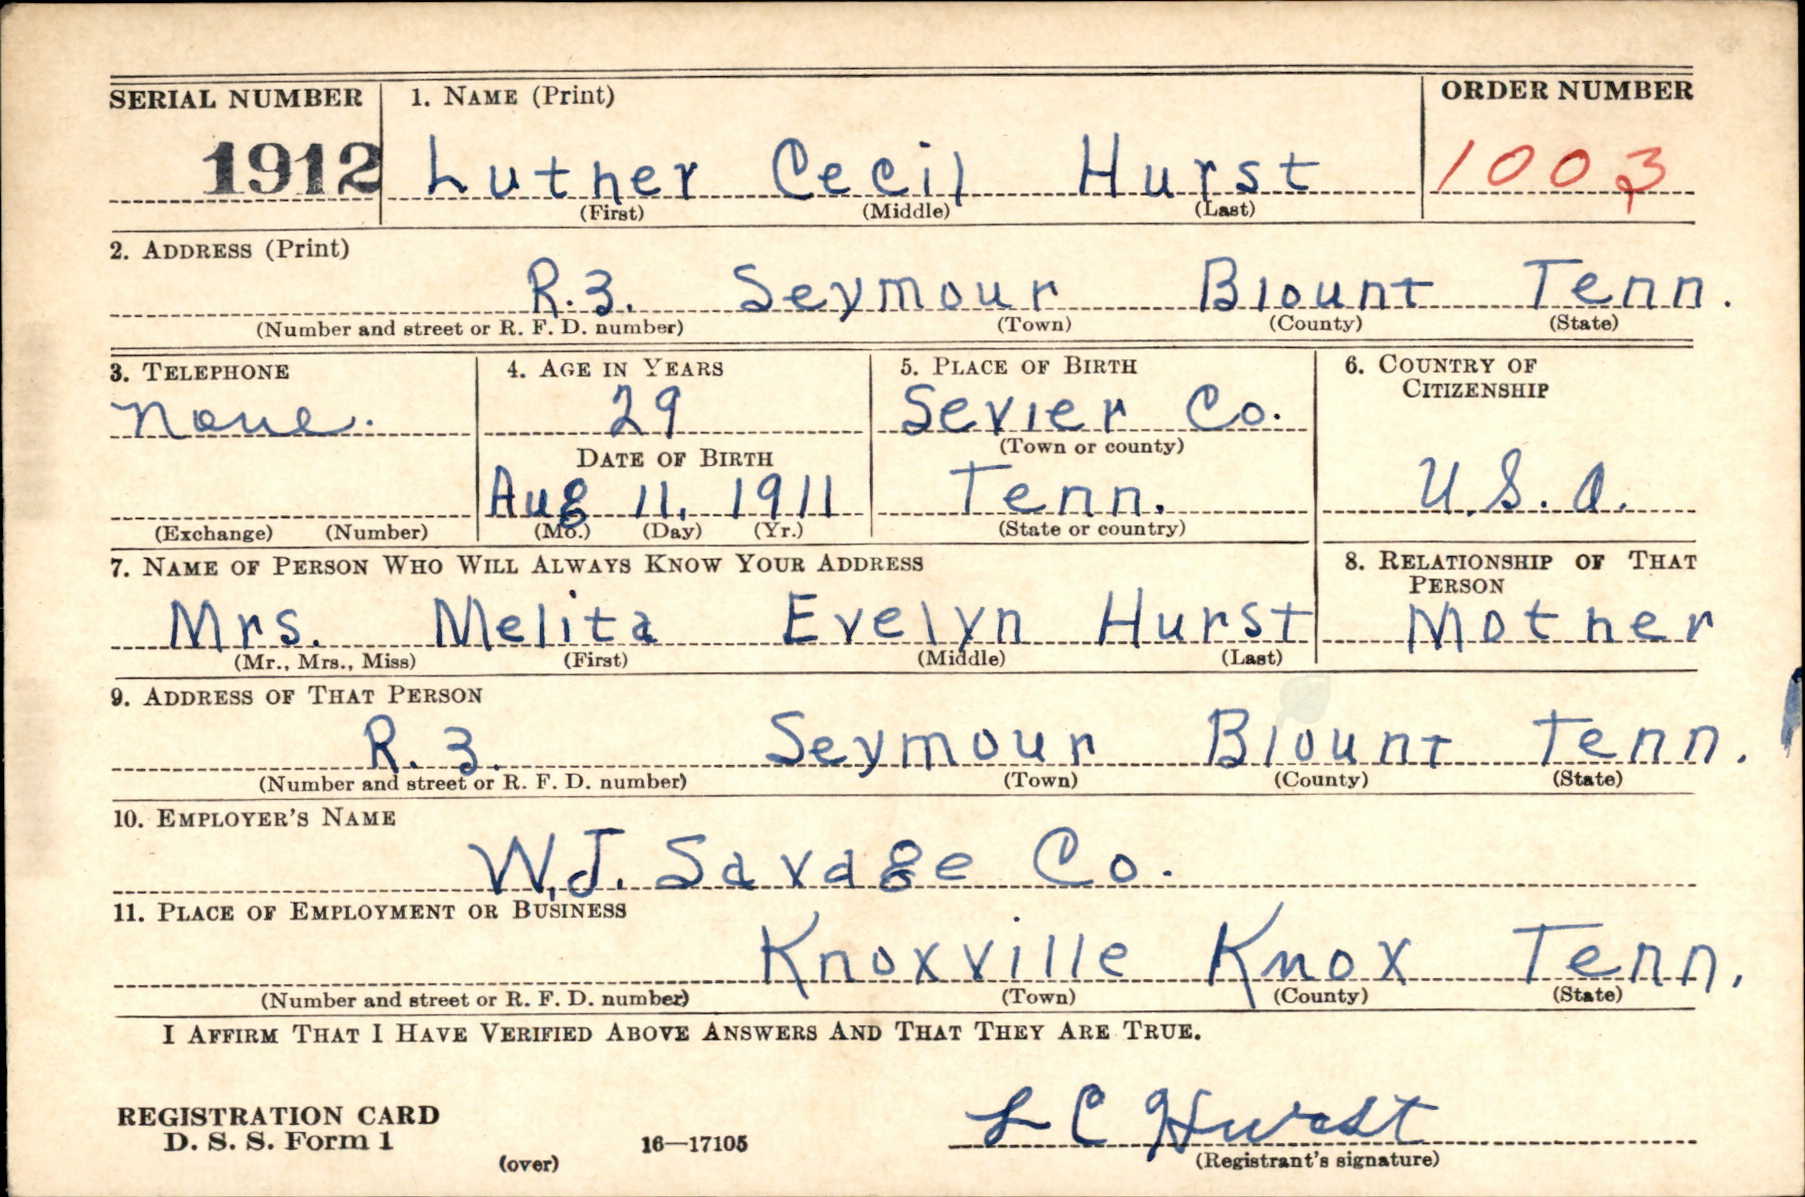 SERIAL NUMBER 1. NAME (Print) ORDER NUMBER
1912 Luther Cecil Hurst 1003
(First) (Middle) (Last)
2. ADDRESS (Print)
R.3. Seymour Blount Tenn.
(Number and street or R. F. D. number) (Town) (County) (State)
3. TELEPHONE 4. AGE IN YEARS 5. PLACE OF BIRTH 6. COUNTRY OF
CITIZENSHIP
None. 29 Sevier Co.
DATE OF BIRTH (Town or county)
Aug 11, 1911 Tenn. U.S.A.
(Exchange) (Number) (Mo.) (Day) (Yr.) (State or country)
7. NAME OF PERSON WHO WILL ALWAYS KNOW YOUR ADDRESS 8. RELATIONSHIP OF THAT
PERSON
Mrs. Melita Evelyn Hurst Mother
(Mr., Mrs., Miss) (First) (Middle) (Last)
9. ADDRESS OF THAT PERSON
R. 3. Seymour Blount Tenn.
(Number and street or R. F. D. number) (Town) (County) (State)
10. EMPLOYER'S NAME
W.J. Savage Co.
11. PLACE OF EMPLOYMENT OR BUSINESS
Knoxville Knox Tenn.
(Number and street or R. F. D. number) (Town) (County) (State)
I AFFIRM THAT I HAVE VERIFIED ABOVE ANSWERS AND THAT THEY ARE TRUE.
REGISTRATION CARD
D. S. S. Form 1 16—17105 L C Hurst
(over) (Registrant's signature)